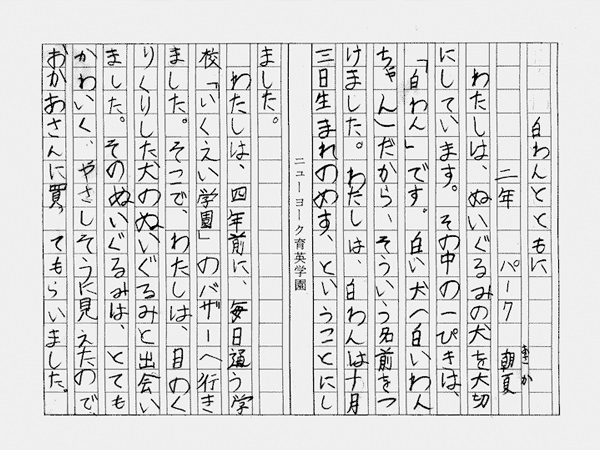 白わんとともに
二年 パーク 朝夏
あさか
わたしは、ぬいぐるみの犬を大切
にしています。その中の一ぴきは、
「白わん」です。白い犬へ白いわん
ちゃん)だから、そういう名前をつ
けました。わたしは、白わんは十月
三日生まれのめす、ということにし
ニューヨーク育英学園
ました。
わたしは、四年前に、毎日通う学
校「いくえい学園」のバザーへ行き
ました。そこで、わたしは、目のく
りくりした犬のぬいぐるみと出会い
ました。そのぬいぐるみは、とても
かわいく、やさしそうに見えたので、
おかあさんに買ってもらいました。